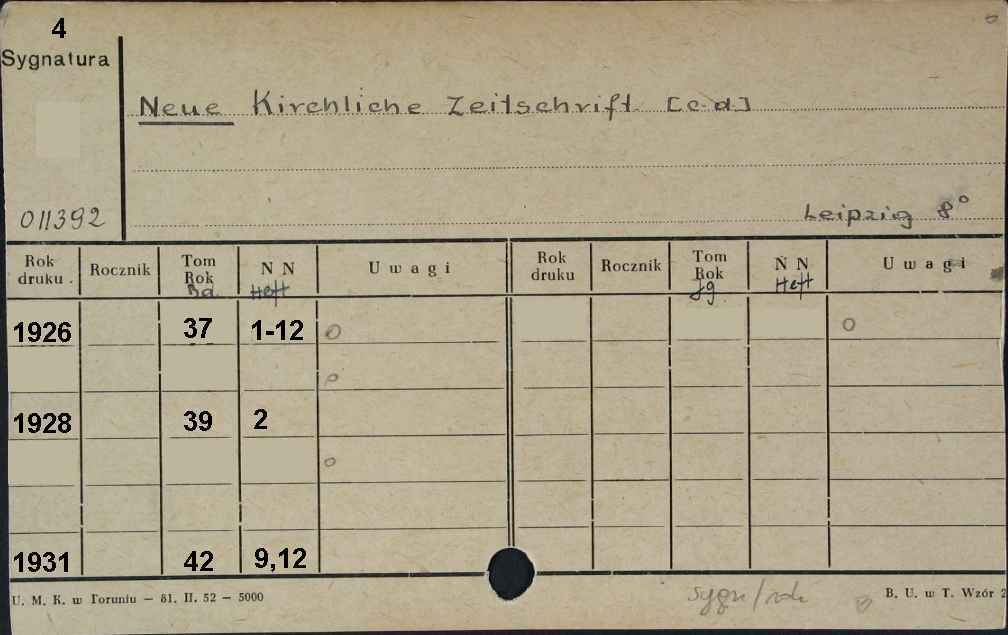 4
Sygnatura
Neue Kirchliche Zeitschrift [c.d]
011392
Leipzig 8°
Rok druku. Rocznik Tom Rok Bd. N N Heft Uwagi Rok druku Rocznik Tom Rok Jg. N N Heft Uwagi
1926 37 1-12
1928 39 2
1931 42 9,12
U. M. K. w Toruniu — 81. II. 52 — 5000
B. U. w T. Wzór 2